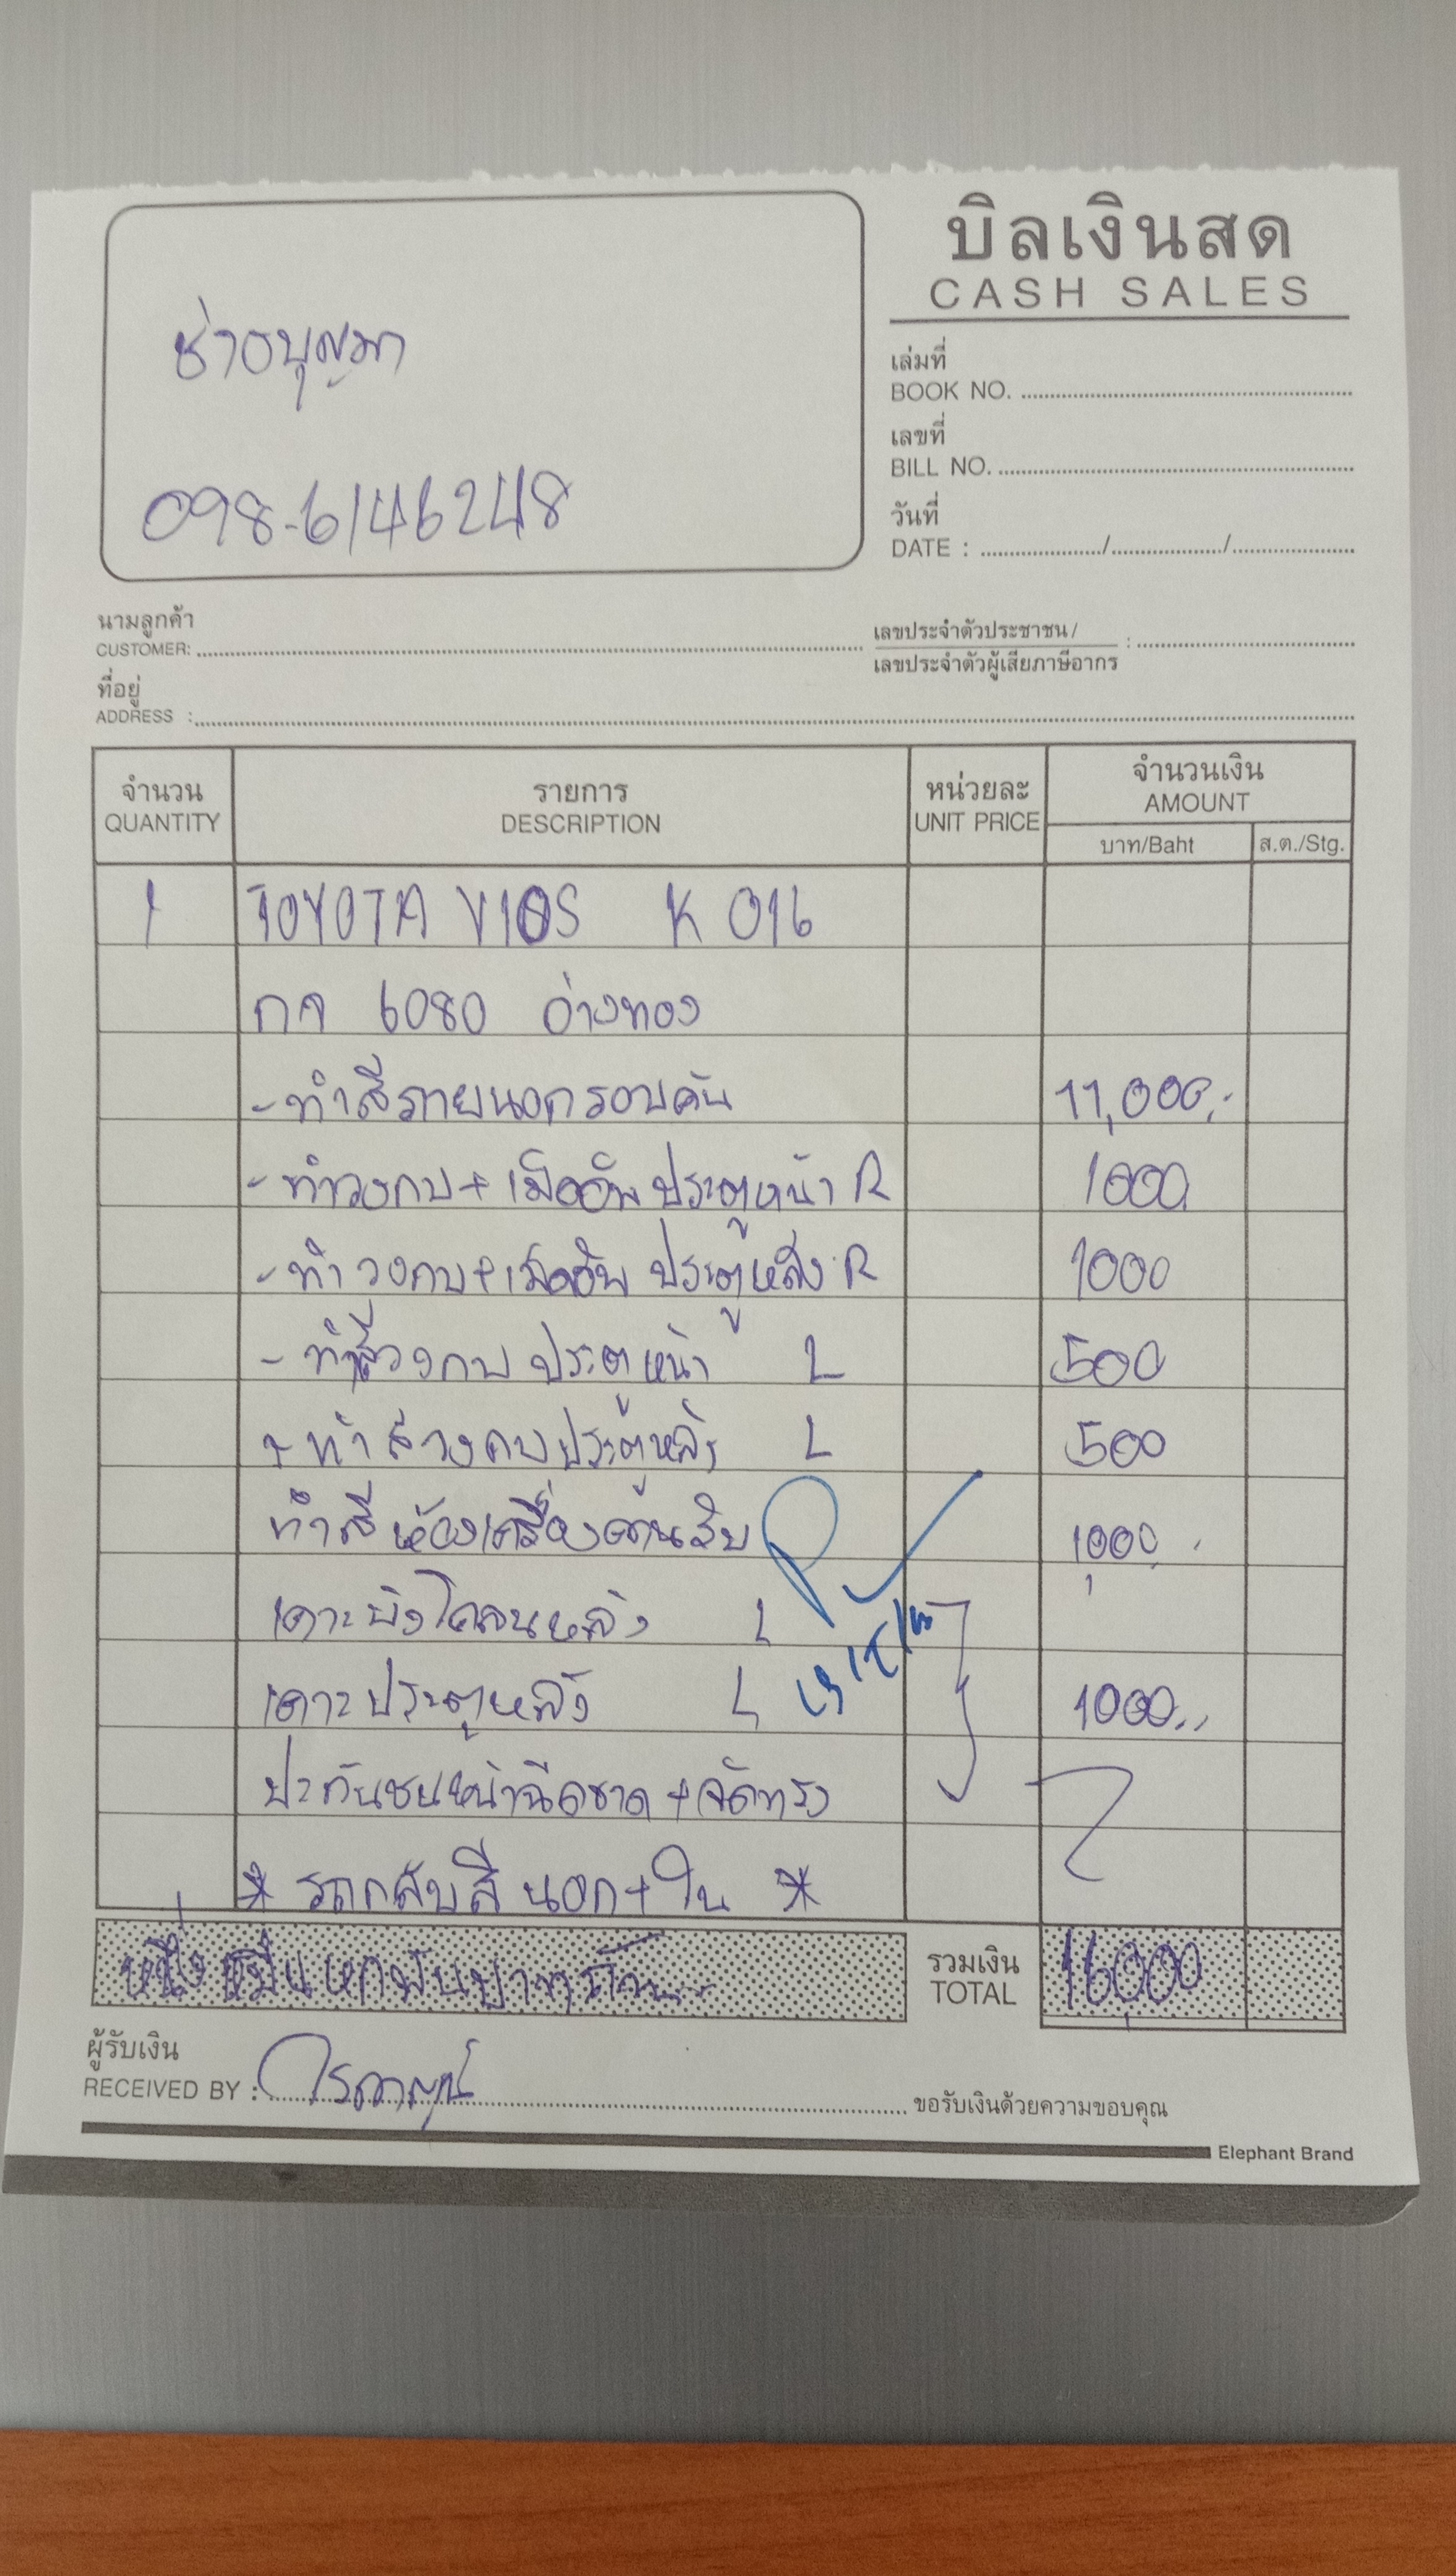 บิลเงินสด
CASH SALES
ช่างบุญมา
098-6146248
เล่มที่
BOOK NO.
เลขที่
BILL NO.
วันที่
DATE : / /
นามลูกค้า
CUSTOMER:
เลขประจำตัวประชาชน /
เลขประจำตัวผู้เสียภาษีอากร :
ที่อยู่
ADDRESS :
จำนวน รายการ หน่วยละ จำนวนเงิน
QUANTITY DESCRIPTION UNIT PRICE AMOUNT
บาท/Baht ส.ต./Stg.
1 TOYOTA VIOS K 016
กจ 6080 อ่างทอง
- ทำสีภายนอกรอบคัน 11,000.-
- ทำวงกบ + ประตูหน้า R 1000
- ทำวงกบ + ประตูหลัง R 1000
- ทำสีวงกบ ประตูหน้า L 500
- ทำสีวงกบประตูหลัง L 500
ทำสีห้องเครื่อง 1000
เคาะบังโคลนหลัง L
เคาะประตูหลัง L 1000
ปะกันชนหน้าฉีกขาด + จัดทรง
* รถกลับสี นอก + ใน *
หนึ่งหมื่นหกพันบาทถ้วน
รวมเงิน 16,000
TOTAL
ผู้รับเงิน
RECEIVED BY :
ขอรับเงินด้วยความขอบคุณ
Elephant Brand